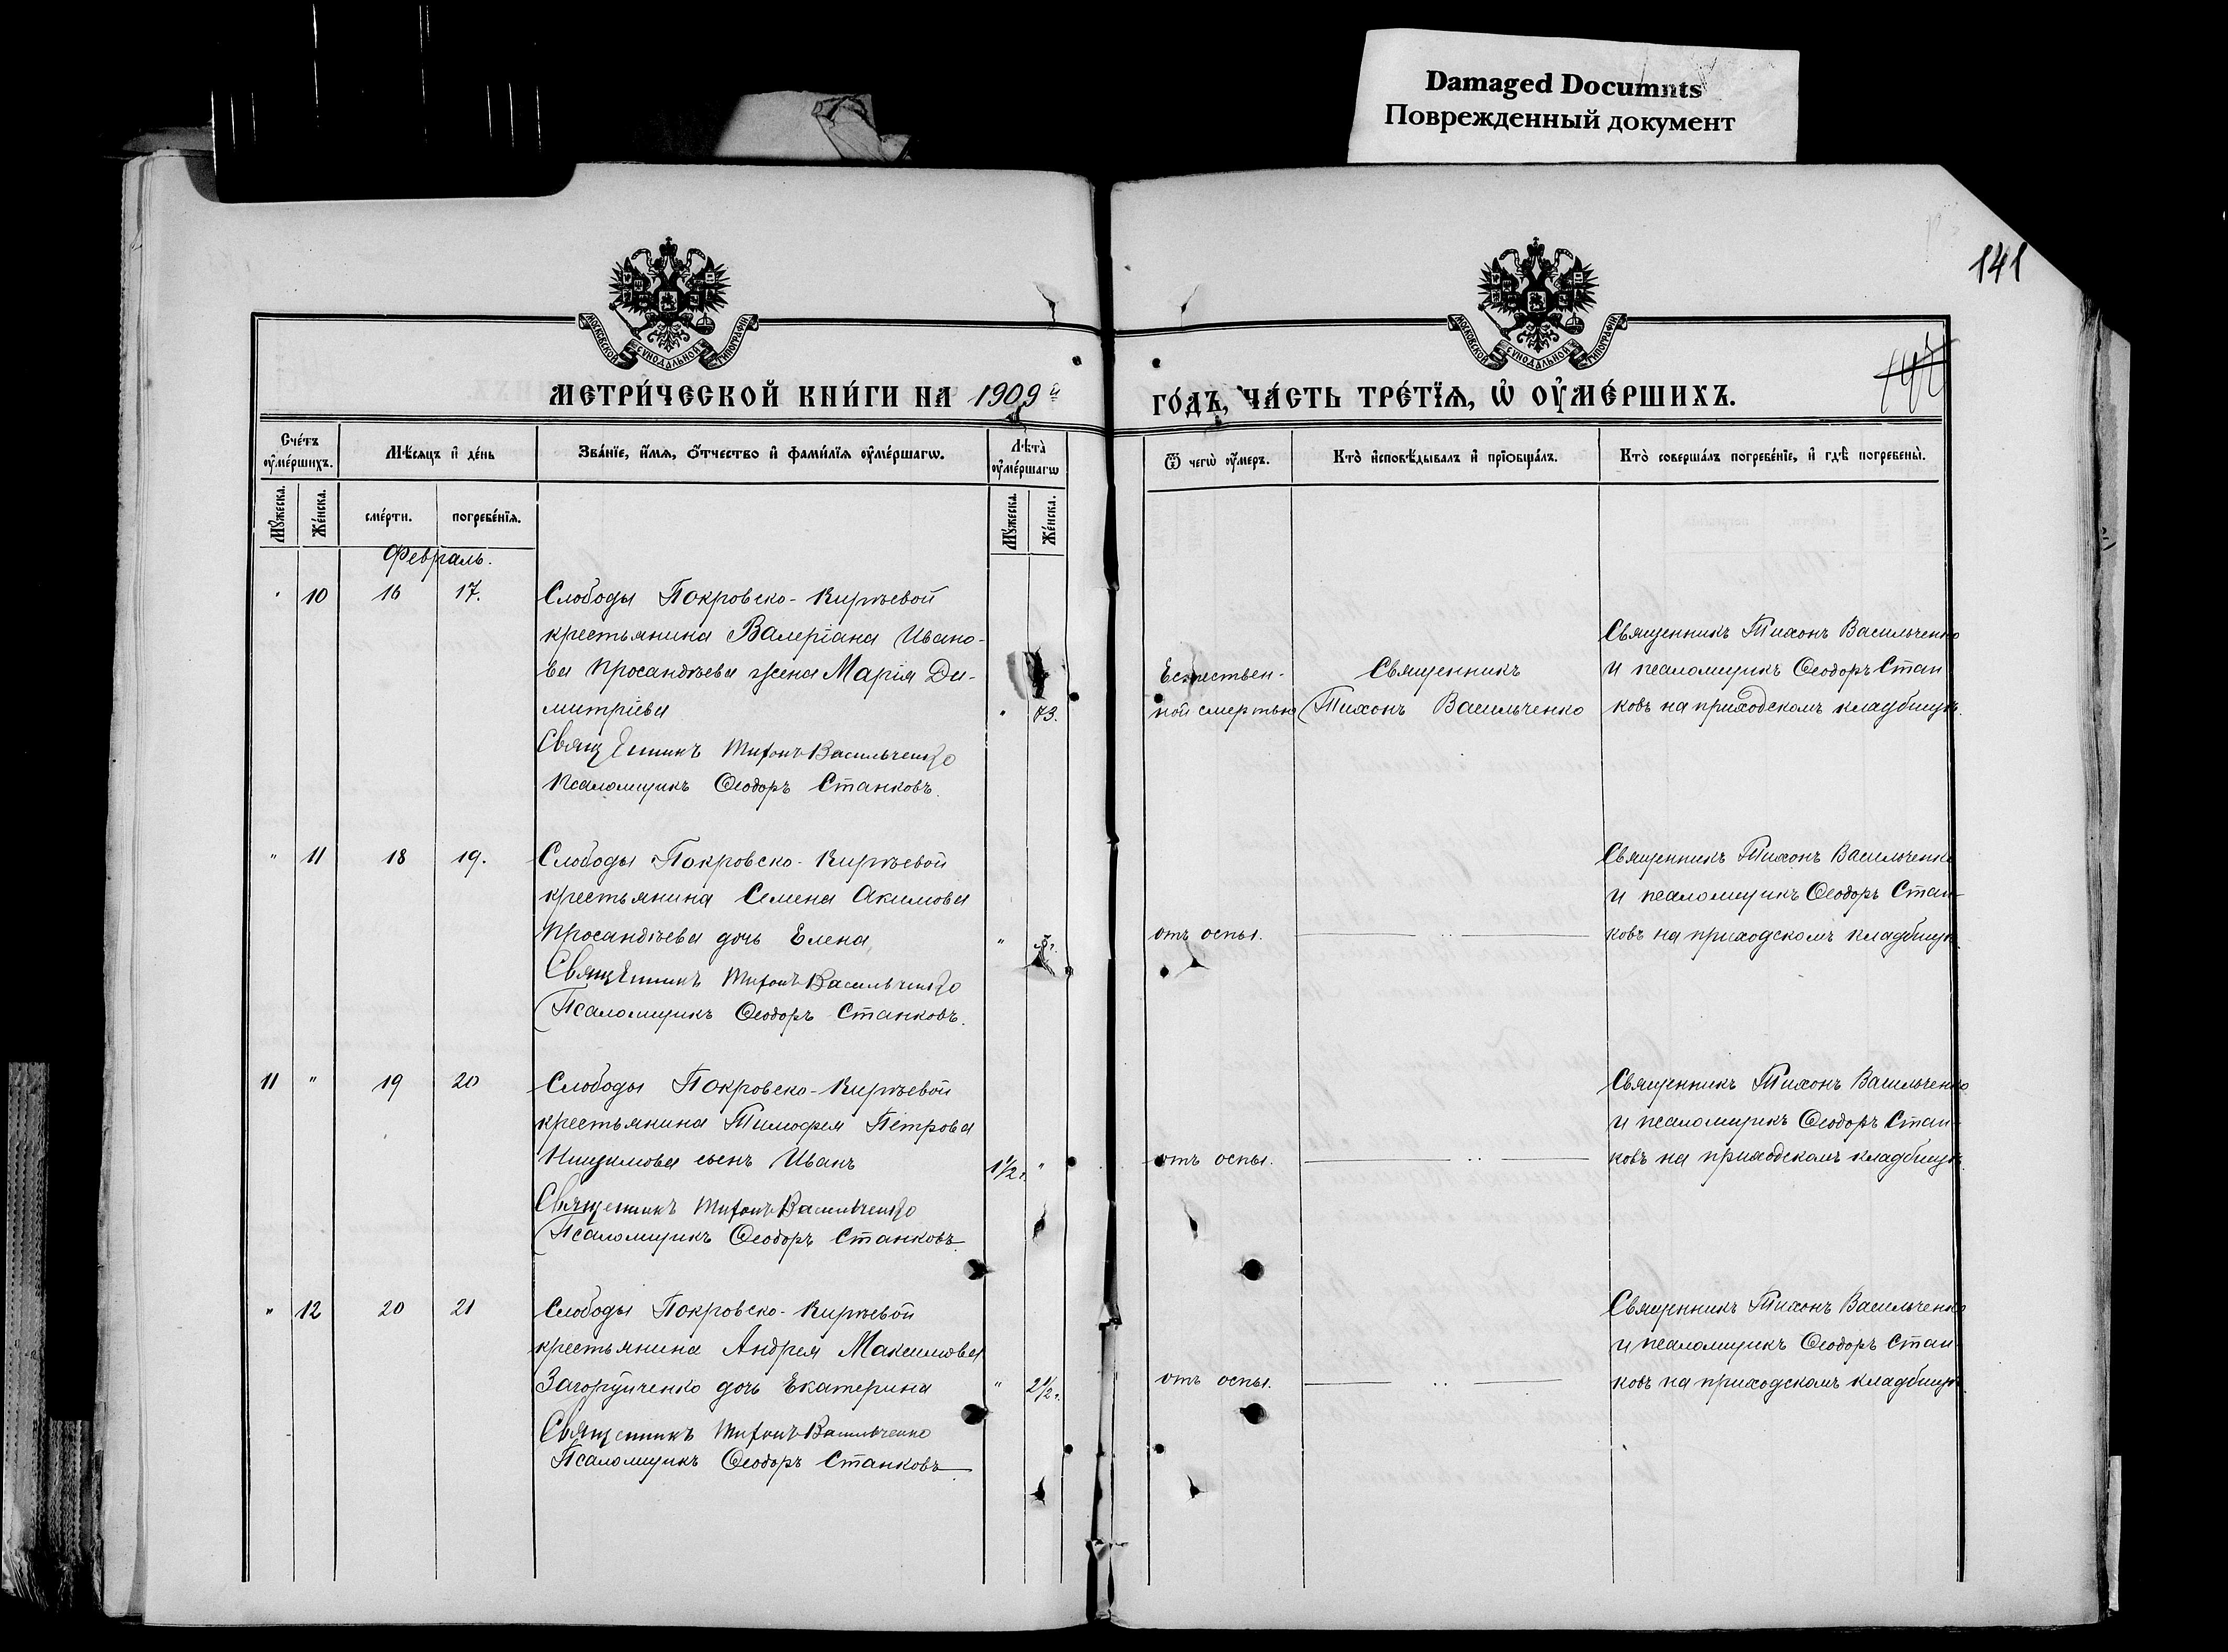 Damaged Documnts
Поврежденный документ
141
МОСКОВСКОЙ СѴНОДАЛЬНОЙ ТИПОГРАФІИ
МОСКОВСКОЙ СѴНОДАЛЬНОЙ ТИПОГРАФІИ
МЕТРИ́ЧЕСКОЙ КНИ́ГИ НА 1909й
ГО́ДЪ, ЧА́СТЬ ТРЕ́ТЇѦ, Ѡ҆ ОУ҆МЕ́РШИХЪ.
Сче́тъ оу҆ме́ршихъ.
Мѣ́сяцъ и҆ де́нь
Зва́нїе, и҆́мя, ѻ҆́тчество и҆ фами́лїя оу҆ме́ршагѡ.
Лѣ́та оу҆ме́ршагѡ
Ѿ чегѡ̀ оу҆́меръ.
Кто̀ и҆сповѣ́дывалъ и҆ прїѻбща́лъ.
Кто̀ соверша́лъ погребе́нїе, и҆ гдѣ̀ погребены̀.
Мꙋ́жеска.
Же́нска.
сме́рти.
погребе́нїя.
Мꙋ́жеска.
Же́нска.
Февраль.
" 10 16 17. Слободы Покровско-Кирѣевой
крестьянина Валеріана Ивано-
ва Просандѣева жена Марія Ди-
митріева " 73.
Священникъ Тихонъ Васильченко
Псаломщикъ Ѳеодоръ Станковъ.
Естествен-
ной смертью
Священникъ
Тихонъ Васильченко
Священникъ Тихонъ Васильченко
и псаломщикъ Ѳеодоръ Стан
ковъ на приходскомъ кладбищѣ.
" 11 18 19. Слободы Покровско-Кирѣевой
крестьянина Семена Акимова
Просандѣева дочь Елена, "
Священникъ Тихонъ Васильченко
Псаломщикъ Ѳеодоръ Станковъ.
отъ оспы. — " —
Священникъ Тихонъ Васильченко
и псаломщикъ Ѳеодоръ Стан-
ковъ на приходскомъ кладбищѣ.
11 " 19 20 Слободы Покровско-Кирѣевой
крестьянина Тимофея Петрова
сынъ Иванъ 1½ г. "
Священникъ Тихонъ Васильченко
Псаломщикъ Ѳеодоръ Станковъ.
отъ оспы. — " —
Священникъ Тихонъ Васильченко
и псаломщикъ Ѳеодоръ Стан-
ковъ на приходскомъ кладбищѣ.
" 12 20 21 Слободы Покровско-Кирѣевой
крестьянина Андрея Максимова
Загоруйченко дочь Екатерина " 2½ г.
Священникъ Тихонъ Васильченко
Псаломщикъ Ѳеодоръ Станковъ.
отъ оспы. — " —
Священникъ Тихонъ Васильченко
и псаломщикъ Ѳеодоръ Стан
ковъ на приходскомъ кладбищѣ.